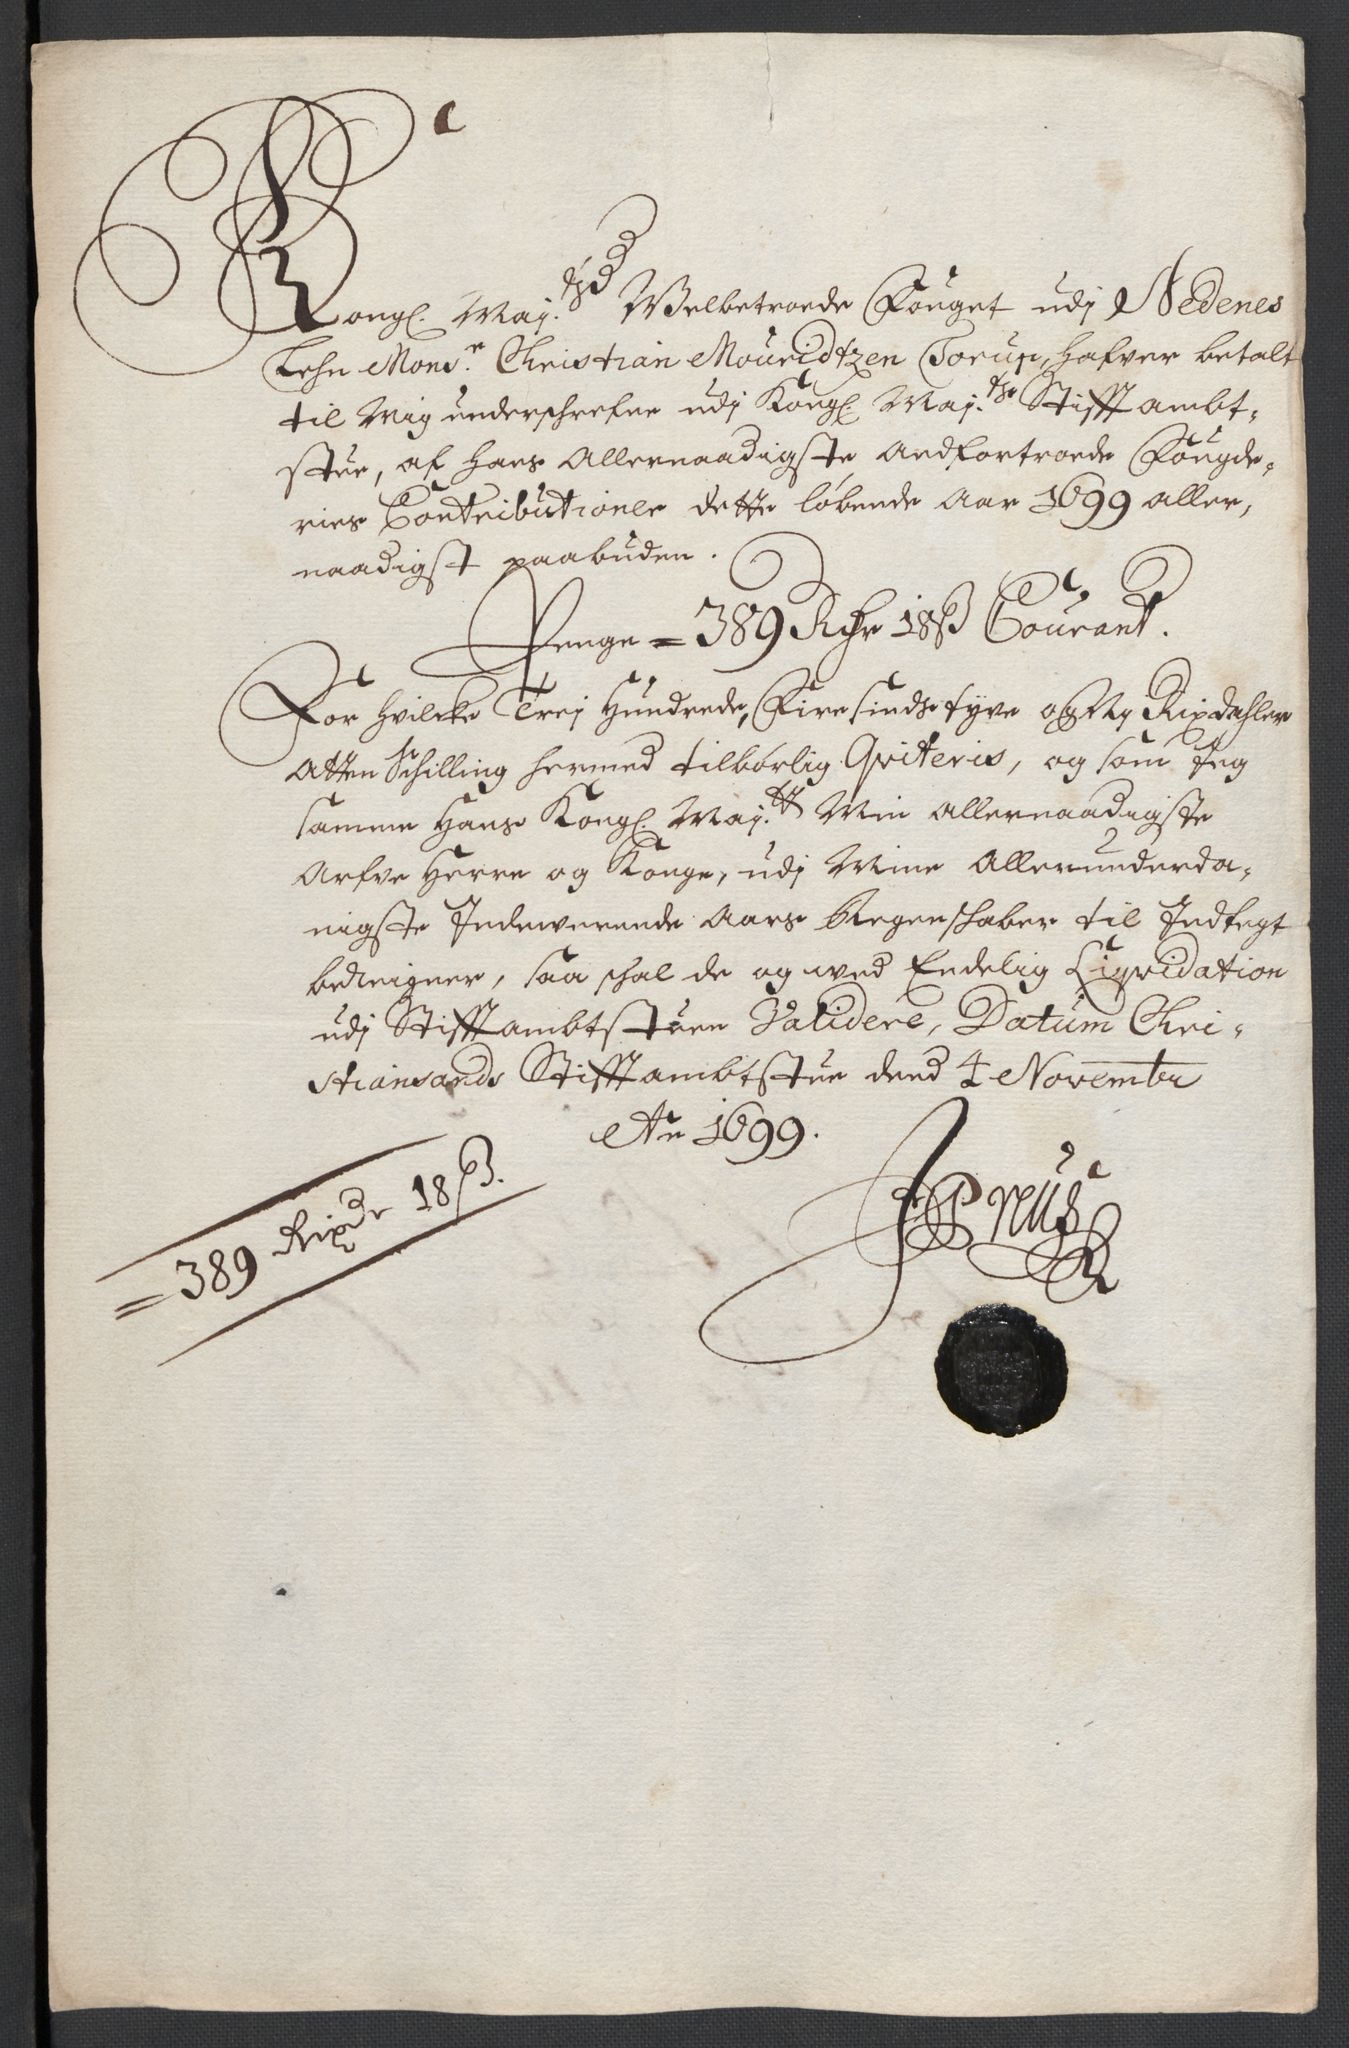 Kongl. May.ts Welbetroede Fouget udj Nedenes
Lehn Mons.r Christian Mouridtzen Torup, hafver betalt
til Mig underschrefne udj Kongl. May.ts Stifftambt-
stue, af hans Allernaadigste Andfortroede Fougde-
ries Contributioner dette løbende Aar 1699 aller-
naadigst paabuden.
Penge = 389 Rdr 18 ß Courant.
For hvilcke Trej Hundrede, Firesindstyve og Nj Rixdahler
Atten Schilling hermed tilbørlig Qviteris, og som Jeg
samme Hans Kongl. May.tt Min Allernaadigste
Arfve Herre og Konge, udj Mine Allerunderda-
nigste Indeværende Aars Regenschaber til Indtegt
bereigner, saa schal de og ved Endelig Liqvidation
udj Stifftambtstuen Validere, Datum Chri-
stiansands Stifftambtstue dend 4 November
Ao 1699.
= 389 Rixdr 18 ß.